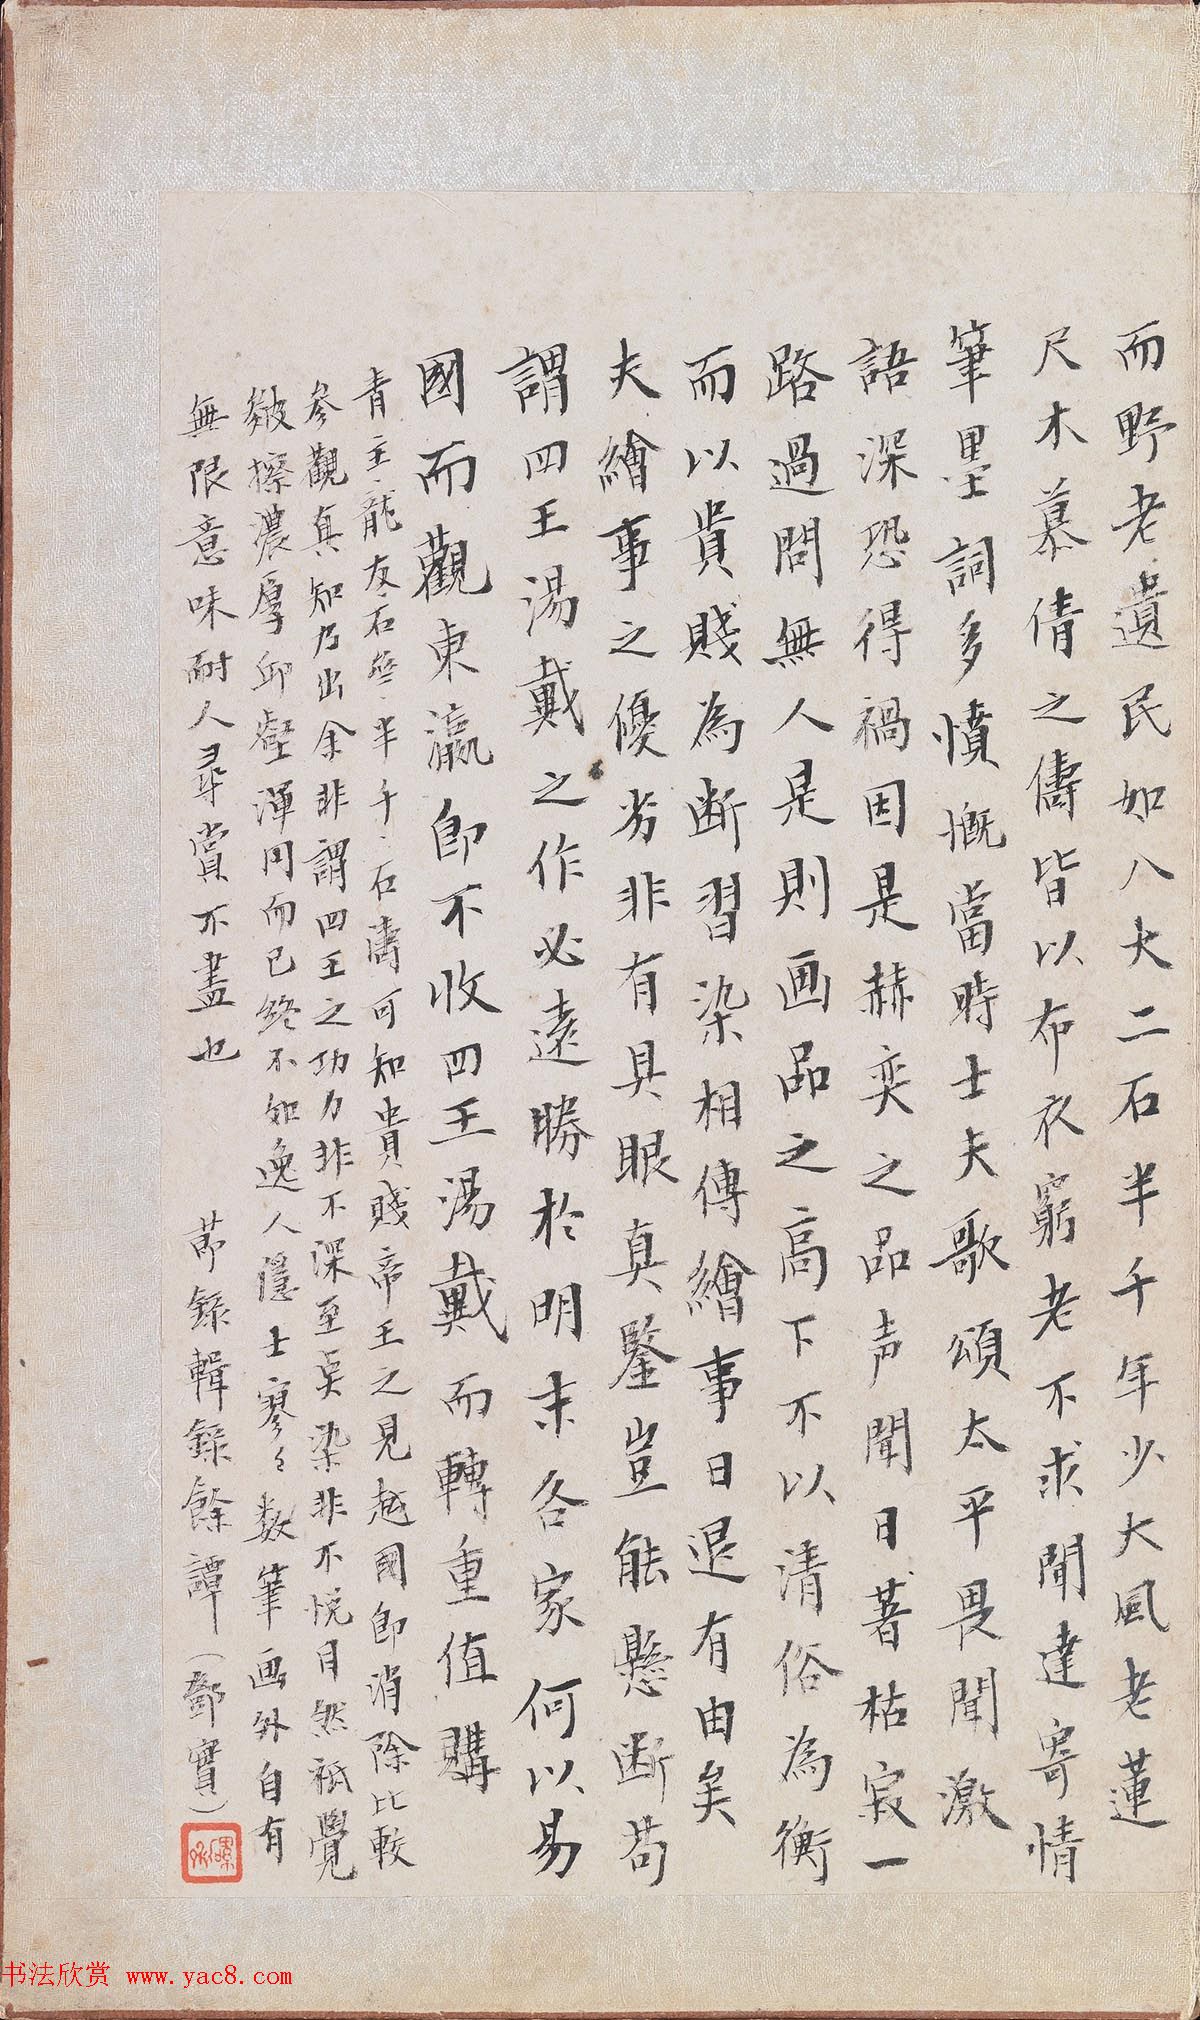 而野老遺民如八大二石半千年少大風老蓮
尺木慕倩之儔皆以布衣窮老不求聞達寄情
筆墨詞多憤慨當時士夫歌頌太平畏聞激
語深恐得禍因是赫奕之品声聞日著枯寂一
路過問無人是則画品之高下不以清俗為衡
而以貴賤為断習染相傳繪事日退有由矣
夫繪事之優劣非有具眼真鑒豈能懸断苟
謂四王湯戴之作必遠勝於明末各家何以易
國而觀東瀛即不收四王湯戴而轉重值購
青主龍友石谿半千石濤可知貴賤帝王之見越國即消除比較
參觀真知乃出余非謂四王之功力非不深至烘染非不悅目然祇覺
皴擦濃厚邱壑渾円而已終不如逸人隱士寥々数筆画外自有
無限意味耐人尋賞不盡也 節錄輯錄餘譚(鄧實)
书法欣赏 www.yac8.com